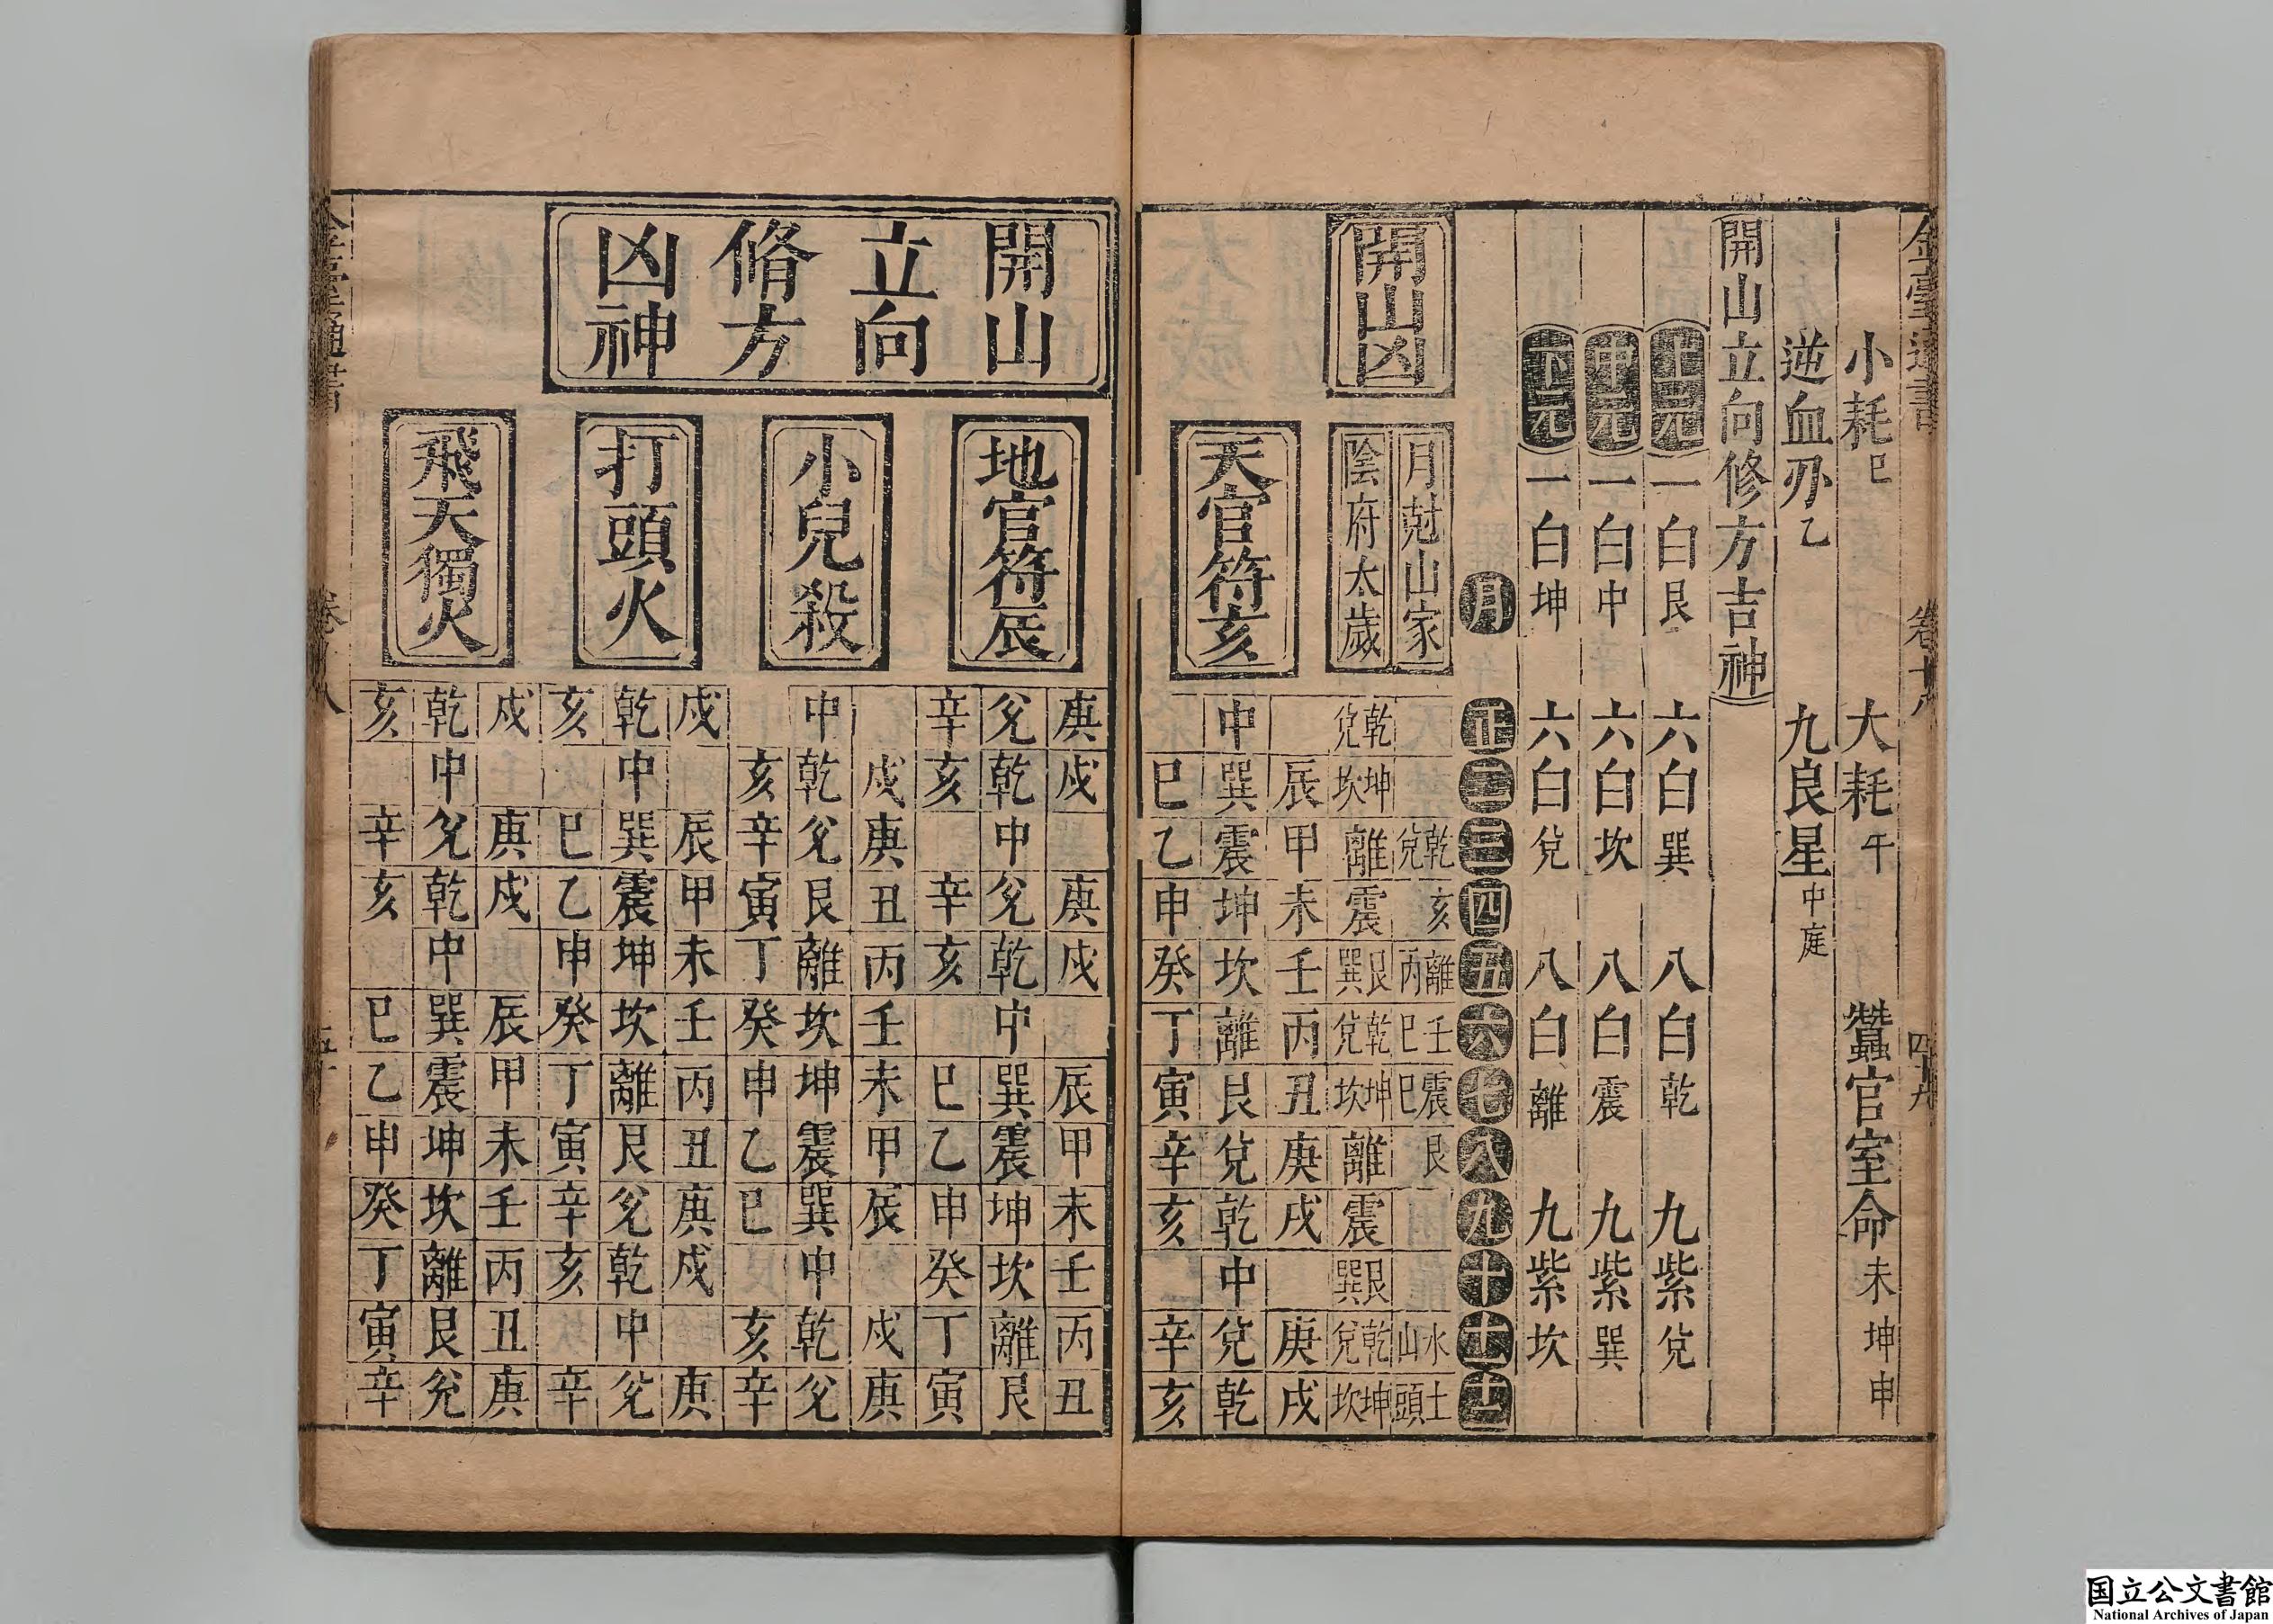 卷十八 四十九
小耗巳 大耗午 蠶官室命未坤申
逆血刃乙 九良星中庭
開山立向修方吉神
上元 一白艮 六白巽 八白乾 九紫兌
中元 一白中 六白坎 八白震 九紫巽
下元 一白坤 六白兌 八白離 九紫坎
月 正 二 三 四 五 六 七 八 九 十 十一 十二
開山凶
月尅山家 乾兌 亥 離丙 壬巳 震巳 艮 水山 土頭
陰府太歲 乾兌 坤坎 離 震 艮巽 乾兌 坤坎 離 震 艮巽 乾兌 坤坎
天官符亥
辰 甲 未 壬 丙 丑 庚 戌 庚 戌
中 巽 震 坤 坎 離 艮 兌 乾 中 兌 乾
巳 乙 申 癸 丁 寅 辛 亥 辛 亥
開山
立向
脩方
凶神
地官符辰
庚 戌 庚 戌 辰 甲 未 壬 丙 丑
兊 乾 中 兊 乾 中 巽 震 坤 坎 離 艮
辛 亥 辛 亥 巳 乙 申 癸 丁 寅
小兒殺
戌 庚 丑 丙 壬 未 甲 辰 戌 庚
中 乾 兊 艮 離 坎 坤 震 巽 中 乾 兊
亥 辛 寅 丁 癸 申 乙 巳 亥 辛
打頭火
戌 辰 甲 未 壬 丙 丑 庚 戌 庚
乾 中 巽 震 坤 坎 離 艮 兊 乾 中 兊
亥 巳 乙 申 癸 丁 寅 辛 亥 辛
飛天獨火
戌 庚 戌 辰 甲 未 壬 丙 丑 庚
乾 中 兊 乾 中 巽 震 坤 坎 離 艮 兊
亥 辛 亥 巳 乙 申 癸 丁 寅 辛
国立公文書館
National Archives of Japan